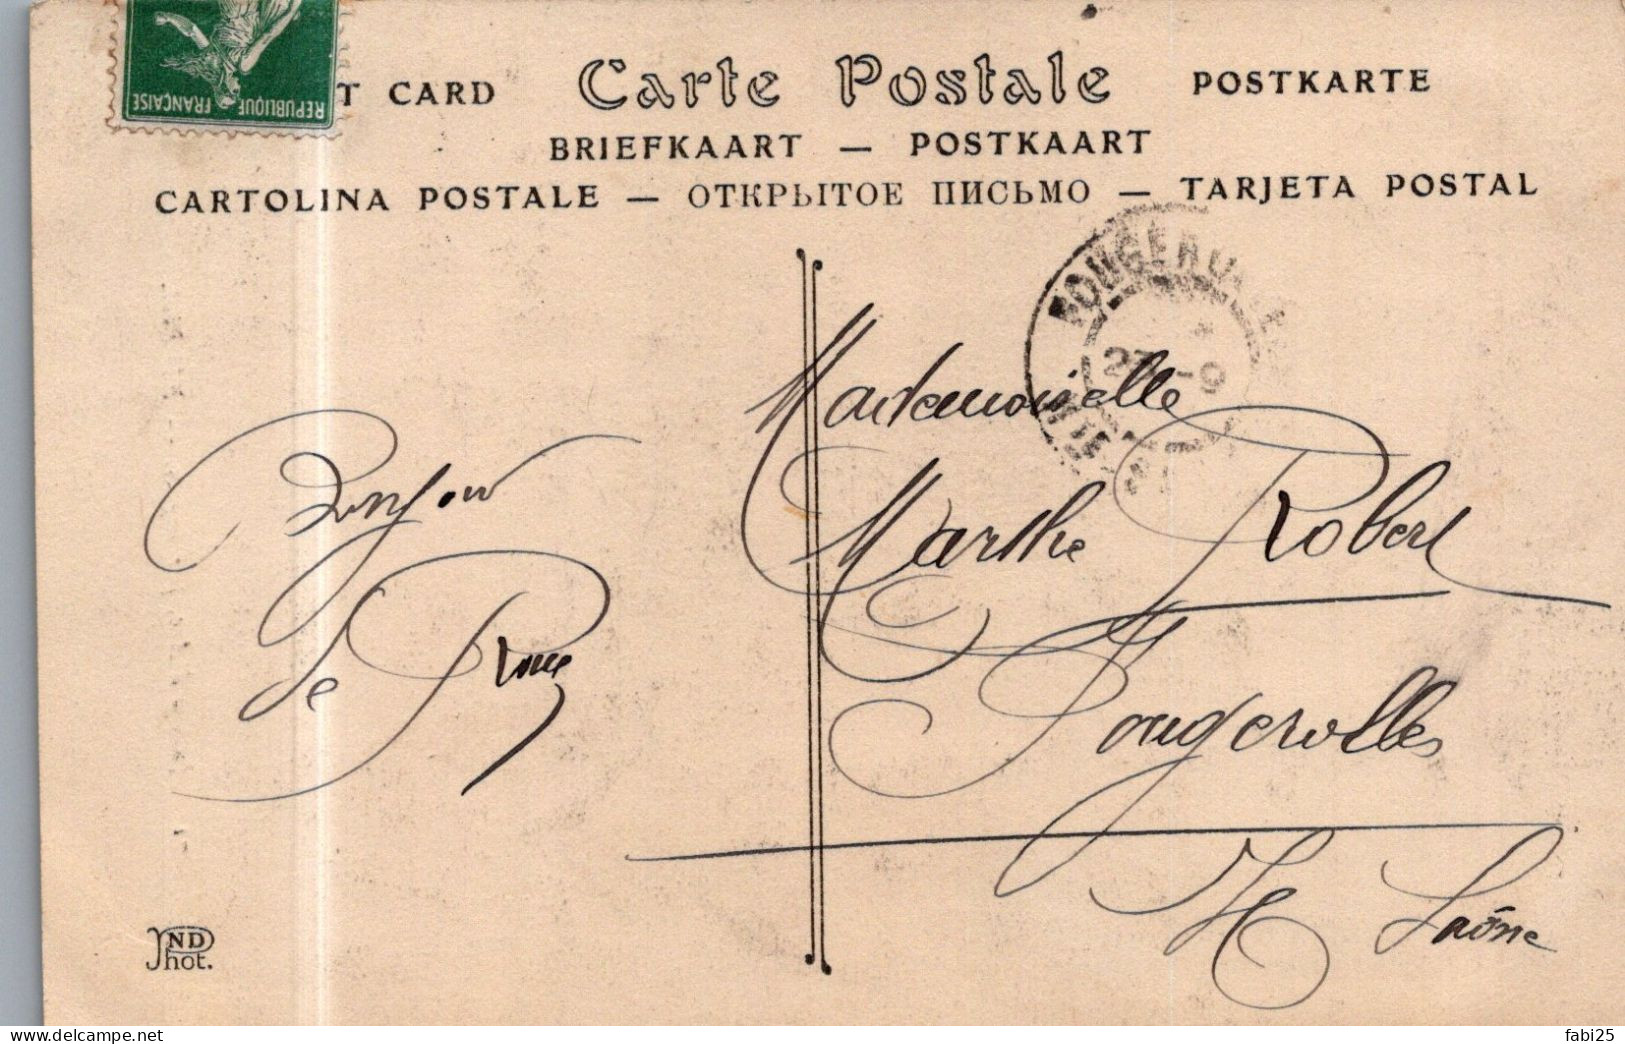 REPUBLIQUE FRANÇAISE
T CARD Carte Postale POSTKARTE
BRIEFKAART — POSTKAART
CARTOLINA POSTALE — ОТКРЫТОЕ ПИСЬМО — TARJETA POSTAL
FOUGEROLLE
27 -9
HTE
Bonjour
de
Mademoiselle
Marthe Robert
Fougerolles
Hte Saône
ND
Phot.
fabi25